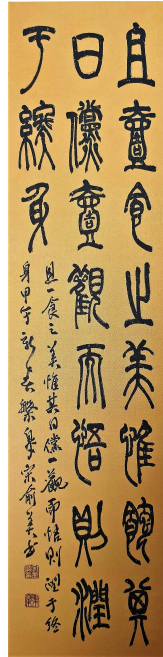 且壹食之美惟飽其
日儻壹觀而悟則潤
于終身
且一食之美惟其日儻一觀而悟則潤于終
身甲午新春